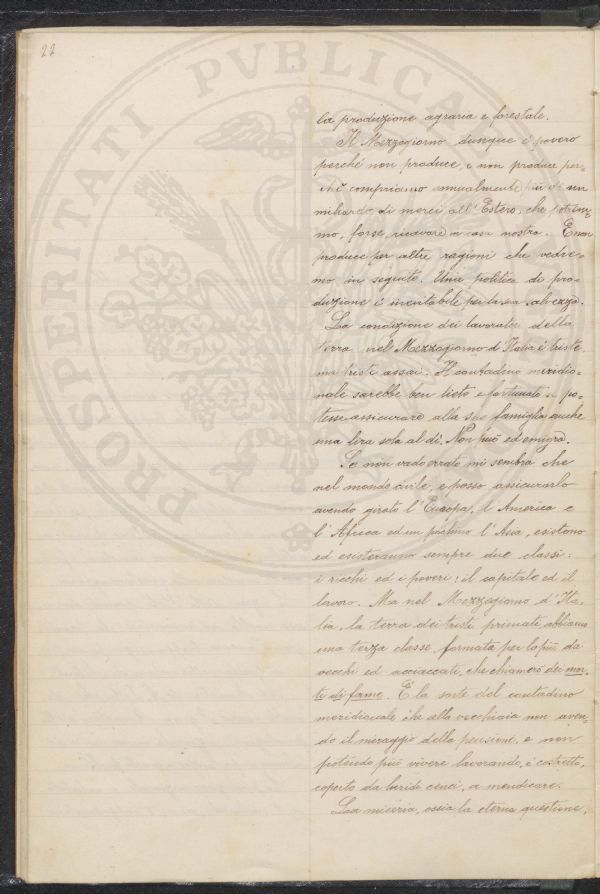 22
PROSPERITATI PVBLICAE
la produzione agraria e forestale.
Il Mezzogiorno dunque è povero
perchè non produce, e non produce per-
chè compriamo annualmente più di un
miliardo di merci all'Estero, che potrem-
mo, forse, ricavare in casa nostra. E non
produce per altre ragioni che vedre-
mo in seguito. Una politica di pro-
duzione è inevitabile per la sua salvezza.
La condizione dei lavoratori della
terra nel Mezzogiorno d'Italia è triste
ma triste assai. Il contadino meridio-
nale sarebbe ben lieto e fortunato se po-
tesse assicurare alla sua famiglia anche
una lira sola al dì. Non può ed emigra.
Se non vado errato mi sembra che
nel mondo civile, e posso assicurarlo
avendo girato l'Europa, l'America e
l'Africa ed un pochino l'Asia, esistono
ed esisteranno sempre due classi:
i ricchi ed i poveri: il capitale ed il
lavoro. Ma nel Mezzogiorno d'Ita-
lia, la terra dei tristi primati, abbiamo
una terza classe, formata per lo più da
vecchi ed acciaccati, che chiamerò dei mor-
ti di fame. È la sorte del contadino
meridionale che alla vecchiaia non aven-
do il miraggio della pensione, e non
potendo più vivere lavorando, è costretto,
coperto da luridi cenci, a mendicare.
La miseria, ossia la eterna questione